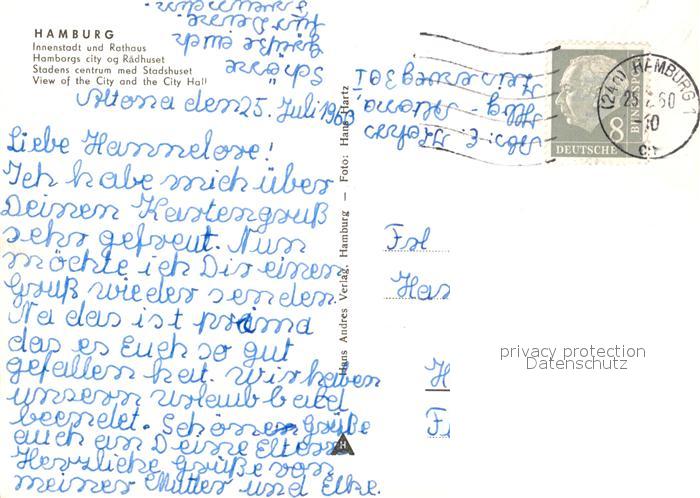 HAMBURG
Innenstadt und Rathaus
Hamborgs city og Rådhuset
Stadens centrum med Stadshuset
View of the City and the City Hall
Altona den 25. Juli 1960
Liebe Hannelore!
Ich habe mich über
Deinen Kartengruß
sehr gefreut. Nun
möchte ich Dir einen
Gruß wieder senden.
Na das ist prima
das es Euch so gut
gefallen hat. Wir haben
unsern Urlaub bald
beendet. Schönen Grüße
auch an Deine Eltern
Herzliche Grüße von
meiner Mutter und Elke.
Schöne
Grüße auch
für Deine
Hans Andres Verlag, Hamburg — Foto: Hans Hartz
H
Abs. E.
Hbg - Altona
30 I
DEUTSCHE
BUNDESPOST
8
(24a) HAMBURG 1
25.7.60
10
Frl
Has
H
F
privacy protection
Datenschutz